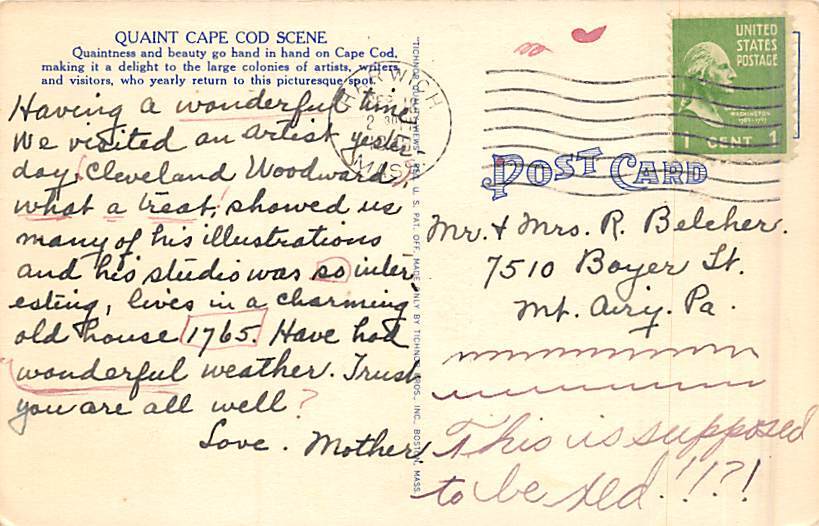 QUAINT CAPE COD SCENE
Quaintness and beauty go hand in hand on Cape Cod,
making it a delight to the large colonies of artists, writers
and visitors, who yearly return to this picturesque spot.
Having a wonderful time.
We visited an artist yester
day, (Cleveland Woodward),
what a treat, showed us
many of his illustrations
and his studio was so inter
esting, lives in a charming
old house 1765. Have had
wonderful weather. Trust
you are all well?
Love. Mother.
HARWICH
MASS
UNITED
STATES
POSTAGE
WASHINGTON
1 CENT 1
POST CARD
Mr. & Mrs. R. Belcher.
7510 Boyer St.
Mt. Airy. Pa.
This is supposed
to be red.!!?!
U. S. PAT. OFF. MADE ONLY BY TICHNOR BROS., INC., BOSTON, MASS.